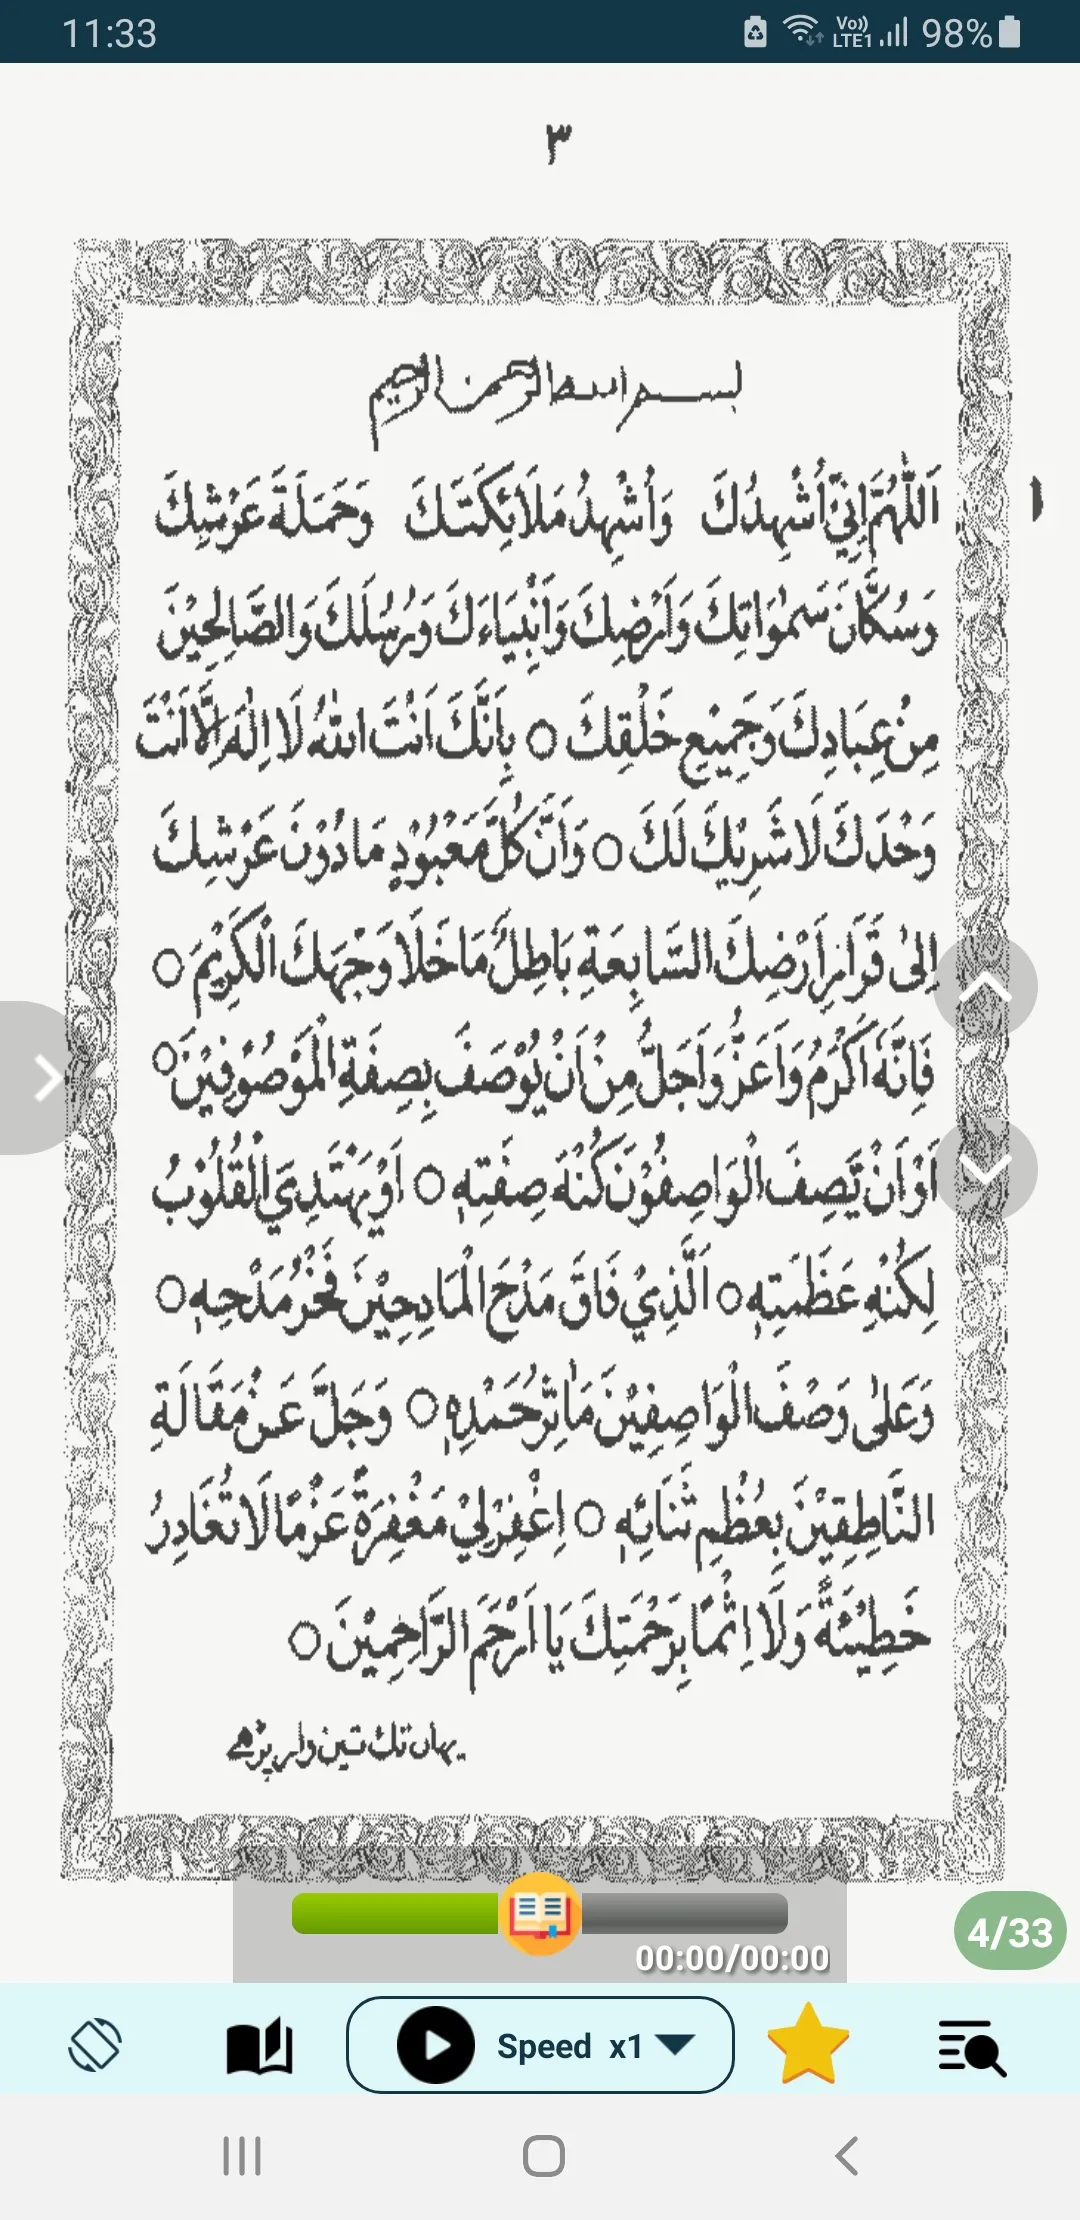 11:33
Vo)) LTE1 98%
٣
بسم الله الرحمن الرحيم
اَللّٰهُمَّ اِنِّيْ اُشْهِدُكَ وَاُشْهِدُ مَلَائِكَتَكَ وَحَمَلَةَ عَرْشِكَ
١
وَسُكَّانَ سَمٰوَاتِكَ وَاَرْضِكَ وَاَنْبِيَاءَكَ وَرُسُلَكَ وَالصَّالِحِيْنَ
مِنْ عِبَادِكَ وَجَمِيْعِ خَلْقِكَ ○ بِاَنَّكَ اَنْتَ اللهُ لَا اِلٰهَ اِلَّا اَنْتَ
وَحْدَكَ لَا شَرِيْكَ لَكَ ○ وَاَنَّ كُلَّ مَعْبُوْدٍ مَا دُوْنَ عَرْشِكَ
اِلىٰ قَرَارِ اَرْضِكَ السَّابِعَةِ بَاطِلٌ مَا خَلَا وَجْهَكَ الْكَرِيْمَ ○
فَاِنَّهٗ اَكْرَمُ وَاَعَزُّ وَاَجَلُّ مِنْ اَنْ يُوْصَفَ بِصِفَةِ الْمَوْصُوْفِيْنَ ○
اَوْ اَنْ تَصِفَ الْوَاصِفُوْنَ كُنْهَ صِفَتِهٖ ○ اَوْ يَهْتَدِيَ الْقُلُوْبُ
لِكُنْهِ عَظَمَتِهٖ ○ اَلَّذِيْ فَاقَ مَدْحَ الْمَادِحِيْنَ فَخْرُ مَدْحِهٖ ○
وَعَلىٰ وَصْفَ الْوَاصِفِيْنَ مَاٰثِرُ حَمْدِهٖ ○ وَجَلَّ عَنْ مَقَالَةِ
النَّاطِقِيْنَ بِعُظْمِ ثَنَائِهٖ ○ اِغْفِرْ لِيْ مَغْفِرَةً عَزْمًا لَا تُغَادِرُ
خَطِيْئَةً وَلَا اِثْمًا بِرَحْمَتِكَ يَا اَرْحَمَ الرَّاحِمِيْنَ ○
يهاں تك تين وار پڑهے
00:00/00:00
4/33
Speed x1